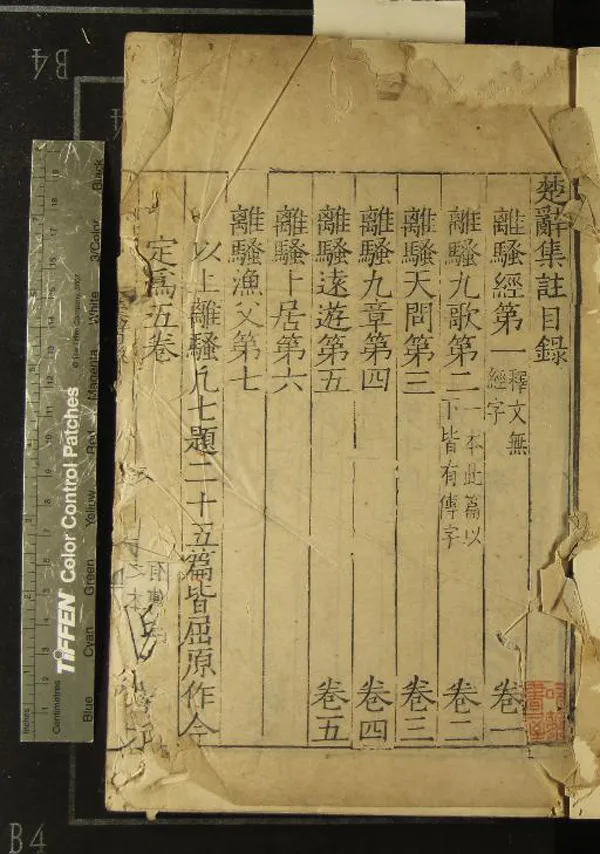 楚辭集註目錄
離騷經第一 釋文無經字 卷一
離騷九歌第二 一本此篇以下皆有傳字 卷二
離騷天問第三 卷三
離騷九章第四 卷四
離騷遠遊第五 卷五
離騷卜居第六
離騷漁父第七
以上離騷凡七題二十五篇皆屈原作今
定為五卷
B4
B4
TIFFEN Color Control Patches
Blue Cyan Green Yellow Red Magenta White 3/Color Black
Inches
Centimetres